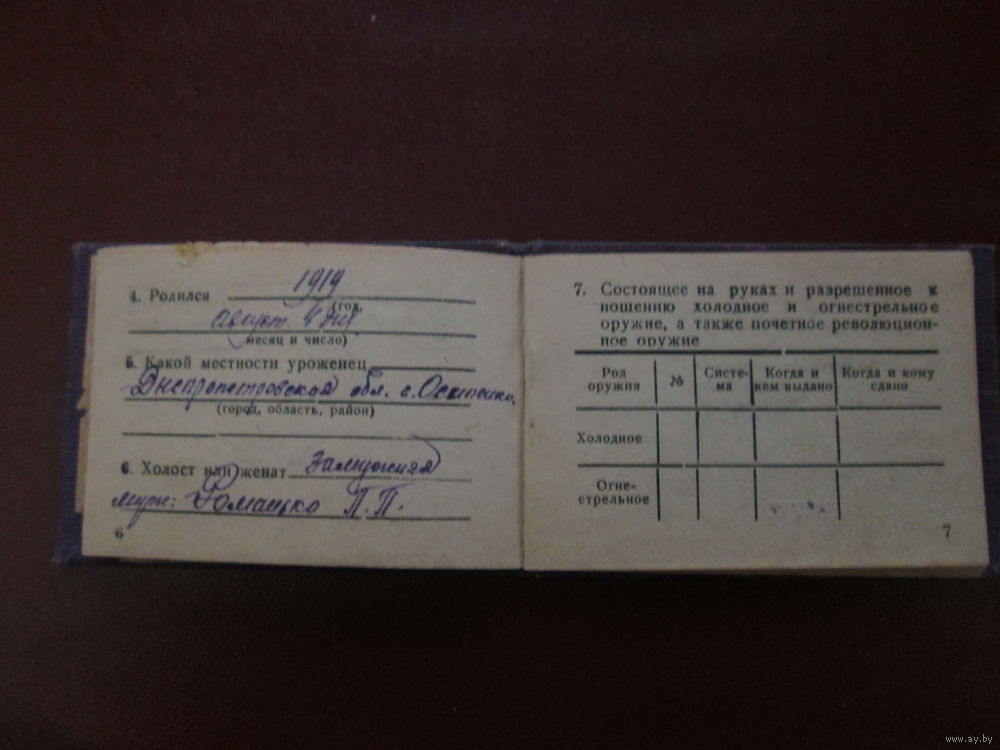 4. Родился 1919
(год,
август. 4 дня.
месяц и число)
5. Какой местности уроженец
Днепропетровская обл. с. Осипенко.
(город, область, район)
6. Холост или женат Замужняя
муж: Романько П. П.
6
7. Состоящее на руках и разрешенное к
ношению холодное и огнестрельное
оружие, а также почетное революцион-
ное оружие
Род оружия № Систе-ма Когда и кем выдано Когда и кому сдано
Холодное
Огне-
стрельное
7
www.ay.by